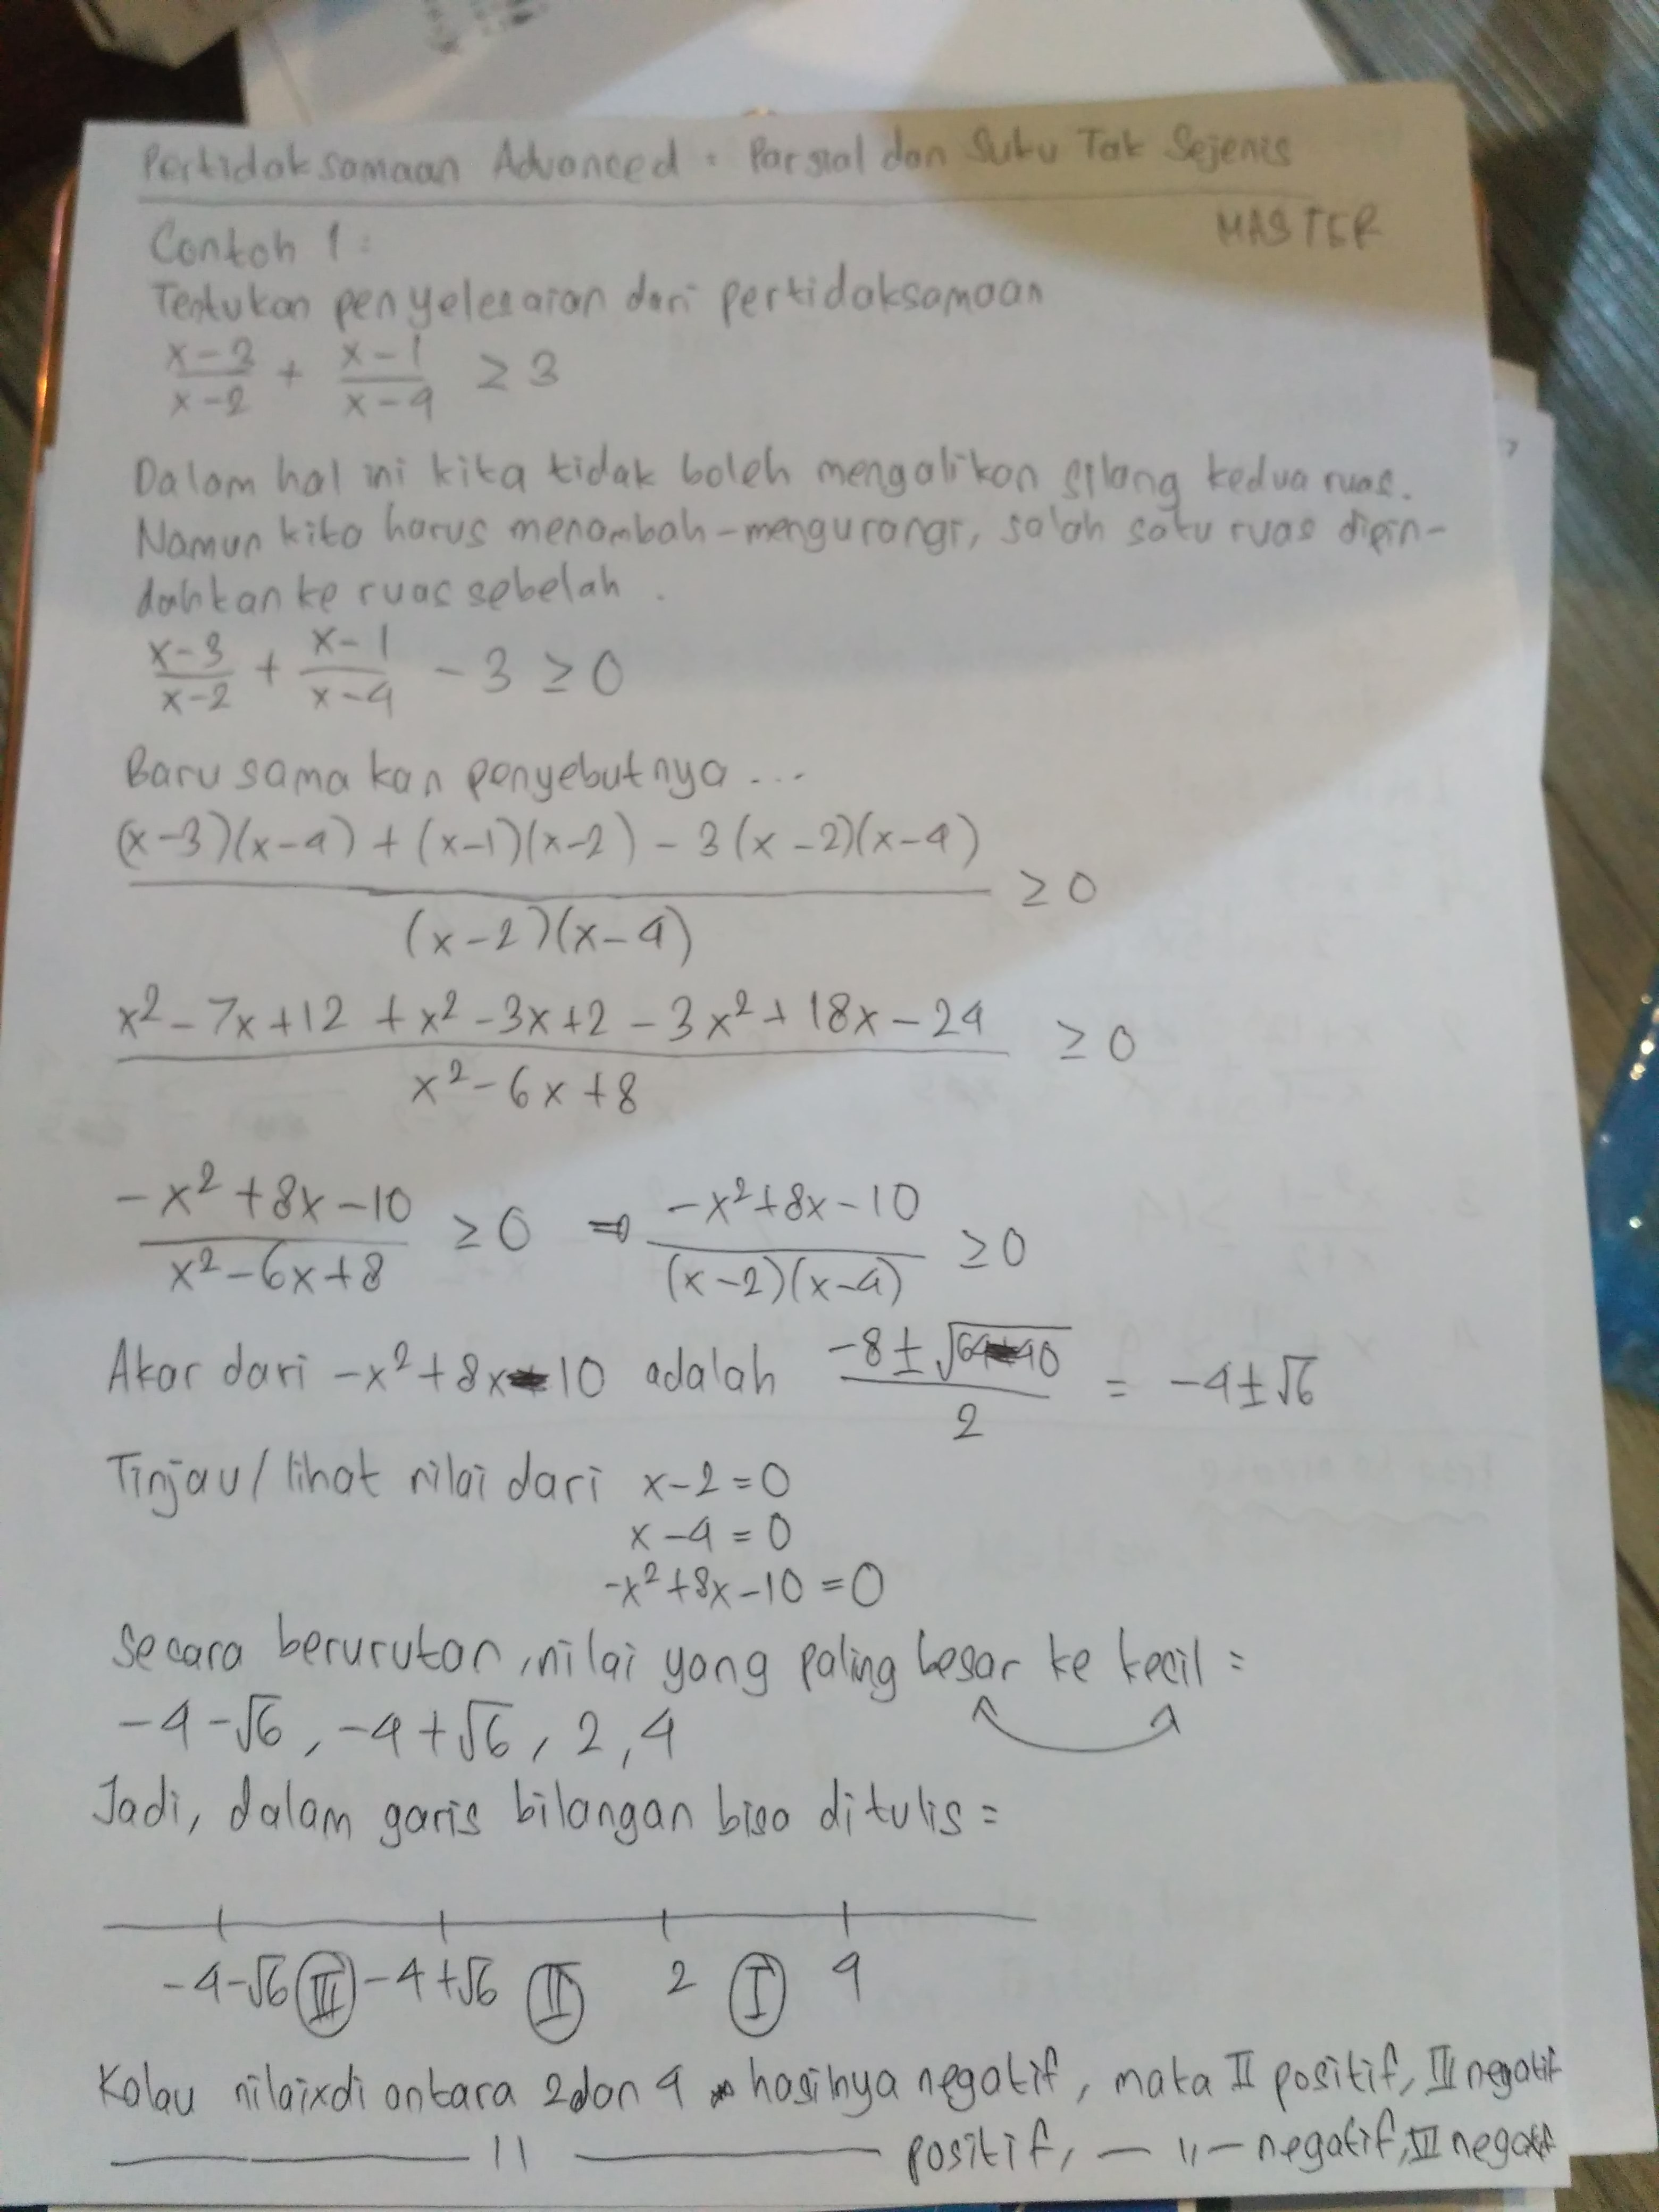 Pertidaksamaan Advanced = Parsial dan Suku Tak Sejenis
MASTER
Contoh 1 =
Tentukan penyelesaian dari pertidaksamaan
(x-2)/(x-2) + (x-1)/(x-4) ≥ 3
Dalam hal ini kita tidak boleh mengalikan silang kedua ruas.
Namun kita harus menambah-mengurangi, salah satu ruas dipin-
dahkan ke ruas sebelah.
(x-3)/(x-2) + (x-1)/(x-4) - 3 ≥ 0
Baru samakan penyebutnya ...
((x-3)(x-4) + (x-1)(x-2) - 3(x-2)(x-4))/((x-2)(x-4)) ≥ 0
(x² - 7x + 12 + x² - 3x + 2 - 3x² + 18x - 24)/(x² - 6x + 8) ≥ 0
(-x² + 8x - 10)/(x² - 6x + 8) ≥ 0 ⇒ (-x² + 8x - 10)/((x-2)(x-4)) ≥ 0
Akar dari -x² + 8x - 10 adalah (-8 ± √(64-40))/2 = -4 ± √6
Tinjau/lihat nilai dari x-2 = 0
x-4 = 0
-x² + 8x - 10 = 0
Secara berurutan, nilai yang paling besar ke kecil =
-4-√6, -4+√6, 2, 4
Jadi, dalam garis bilangan bisa ditulis =
-4-√6 III -4+√6 II 2 I 4
Kalau nilai x di antara 2 dan 4 hasilnya negatif, maka II positif, III negatif
—— 11 —— positif, — 11 — negatif, III negatif